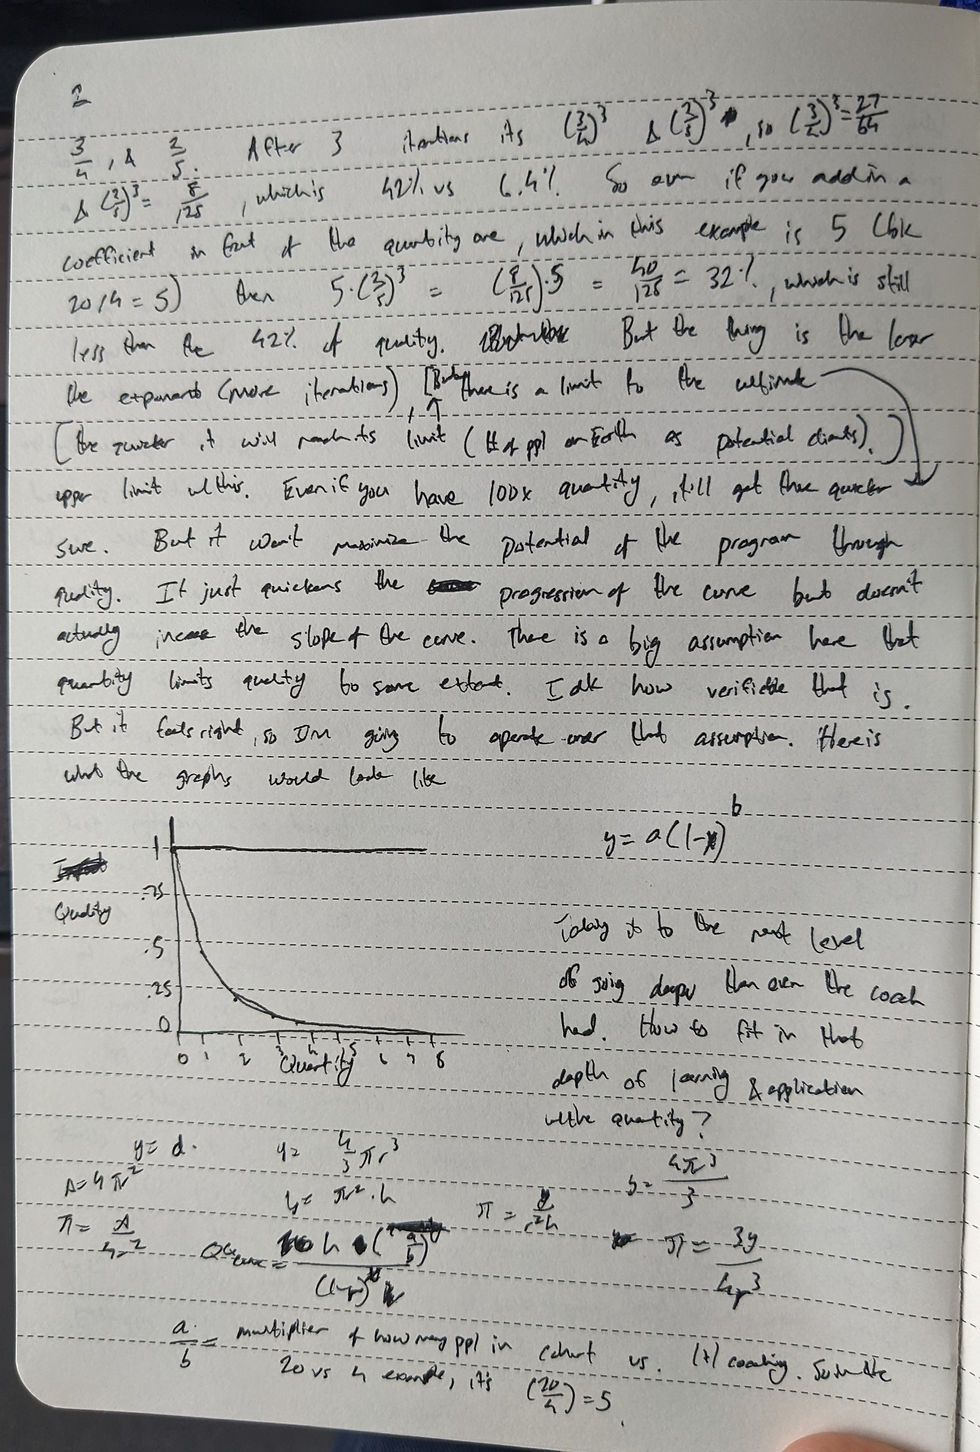 2
3/4, & 2/5. After 3 iterations its (3/4)^3 & (2/5)^3, so (3/4)^3 = 27/64
& (2/5)^3 = 8/125, which is 42% vs 6.4%. So even if you add in a
coefficient in front of the quantity one, which in this example is 5 (b/c
20/4 = 5) then 5·(2/5)^3 = (8/125)·5 = 40/125 = 32%, which is still
less than the 42% of quality. But the thing is the larer
the exponents (more iterations), there is a limit to the ultimate
[the quicker it will reach its limit (# of ppl on Earth as potential clients).]
upper limit w/ this. Even if you have 100x quantity, it'll get there quicker
sure. But it won't maximize the potential of the program through
quality. It just quickens the progression of the curve but doesn't
actually increase the slope of the curve. There is a big assumption here that
quantity limits quality to some extent. I dk how verifiable that is.
But it feels right, so I'm going to operate over that assumption. Here is
what the graphs would look like
y = a(1-x)^b
1
.75
Quality
.5
.25
0
0 1 2 3 4 5 6 7 8
Quantity
Taking it to the next level
of going deeper than even the coach
had. How to fit in that
depth of learning & application
w/ the quantity?
y = d.
y = 4/3 πr^3
y = 4πr^3/3
A = 4πr^2
y = πr^2·h
π = A/4r^2
π = 3y/4r^3
a/b = multiplier of how many ppl in cohort vs. coaching. So in the
20 vs 4 example, it's (20/4) = 5.